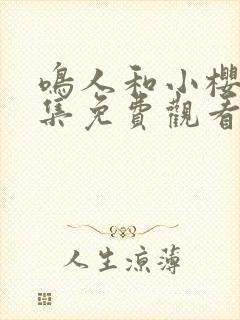 鳴人和小櫻
集免費觀看
人生涼薄